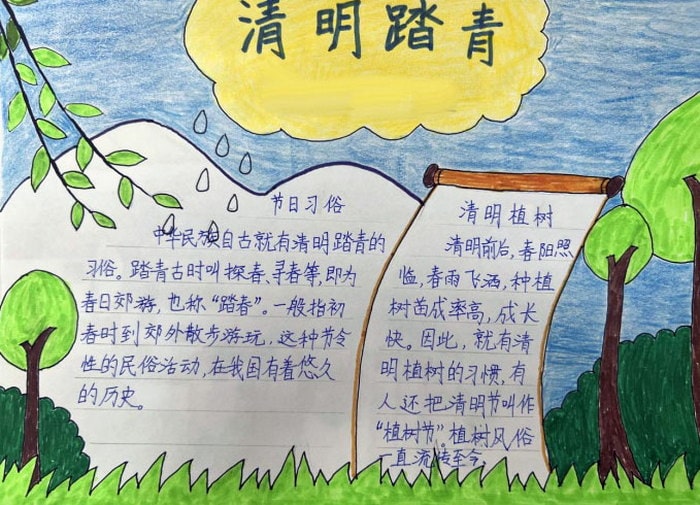 清明踏青
节日习俗
中华民族自古就有清明踏青的
习俗。踏青古时叫探春、寻春等,即为
春日郊游,也称“踏春”。一般指初
春时到郊外散步游玩,这种节令
性的民俗活动,在我国有着悠久
的历史。
清明植树
清明前后,春阳照
临,春雨飞洒,种植
树苗成率高,成长
快。因此,就有清
明植树的习惯,有
人还把清明节叫作
“植树节”。植树风俗
一直流传至今